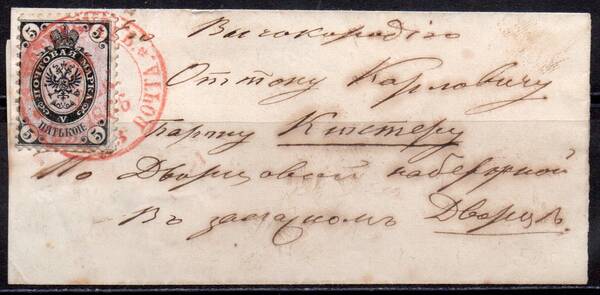 5 5
ПОЧТОВАЯ МАРКА
V
ПЯТЬ КОП.
5 5
ПОЧТА
Его Высокородію
Оттону Карловичу
Барону Кистеру
По Дворцовой набережной
Въ запасномъ Дворцѣ.